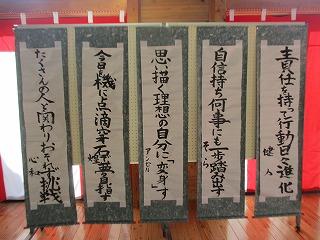 責任を持って行動日々進化
健人
自信持ち何事にも一歩踏み出す
そら
思い描く理想の自分に「変身」す
アンセル
今日を機に点滴穿石夢目指す
煌
たくさんの人と関わりおそれず挑戦
心和